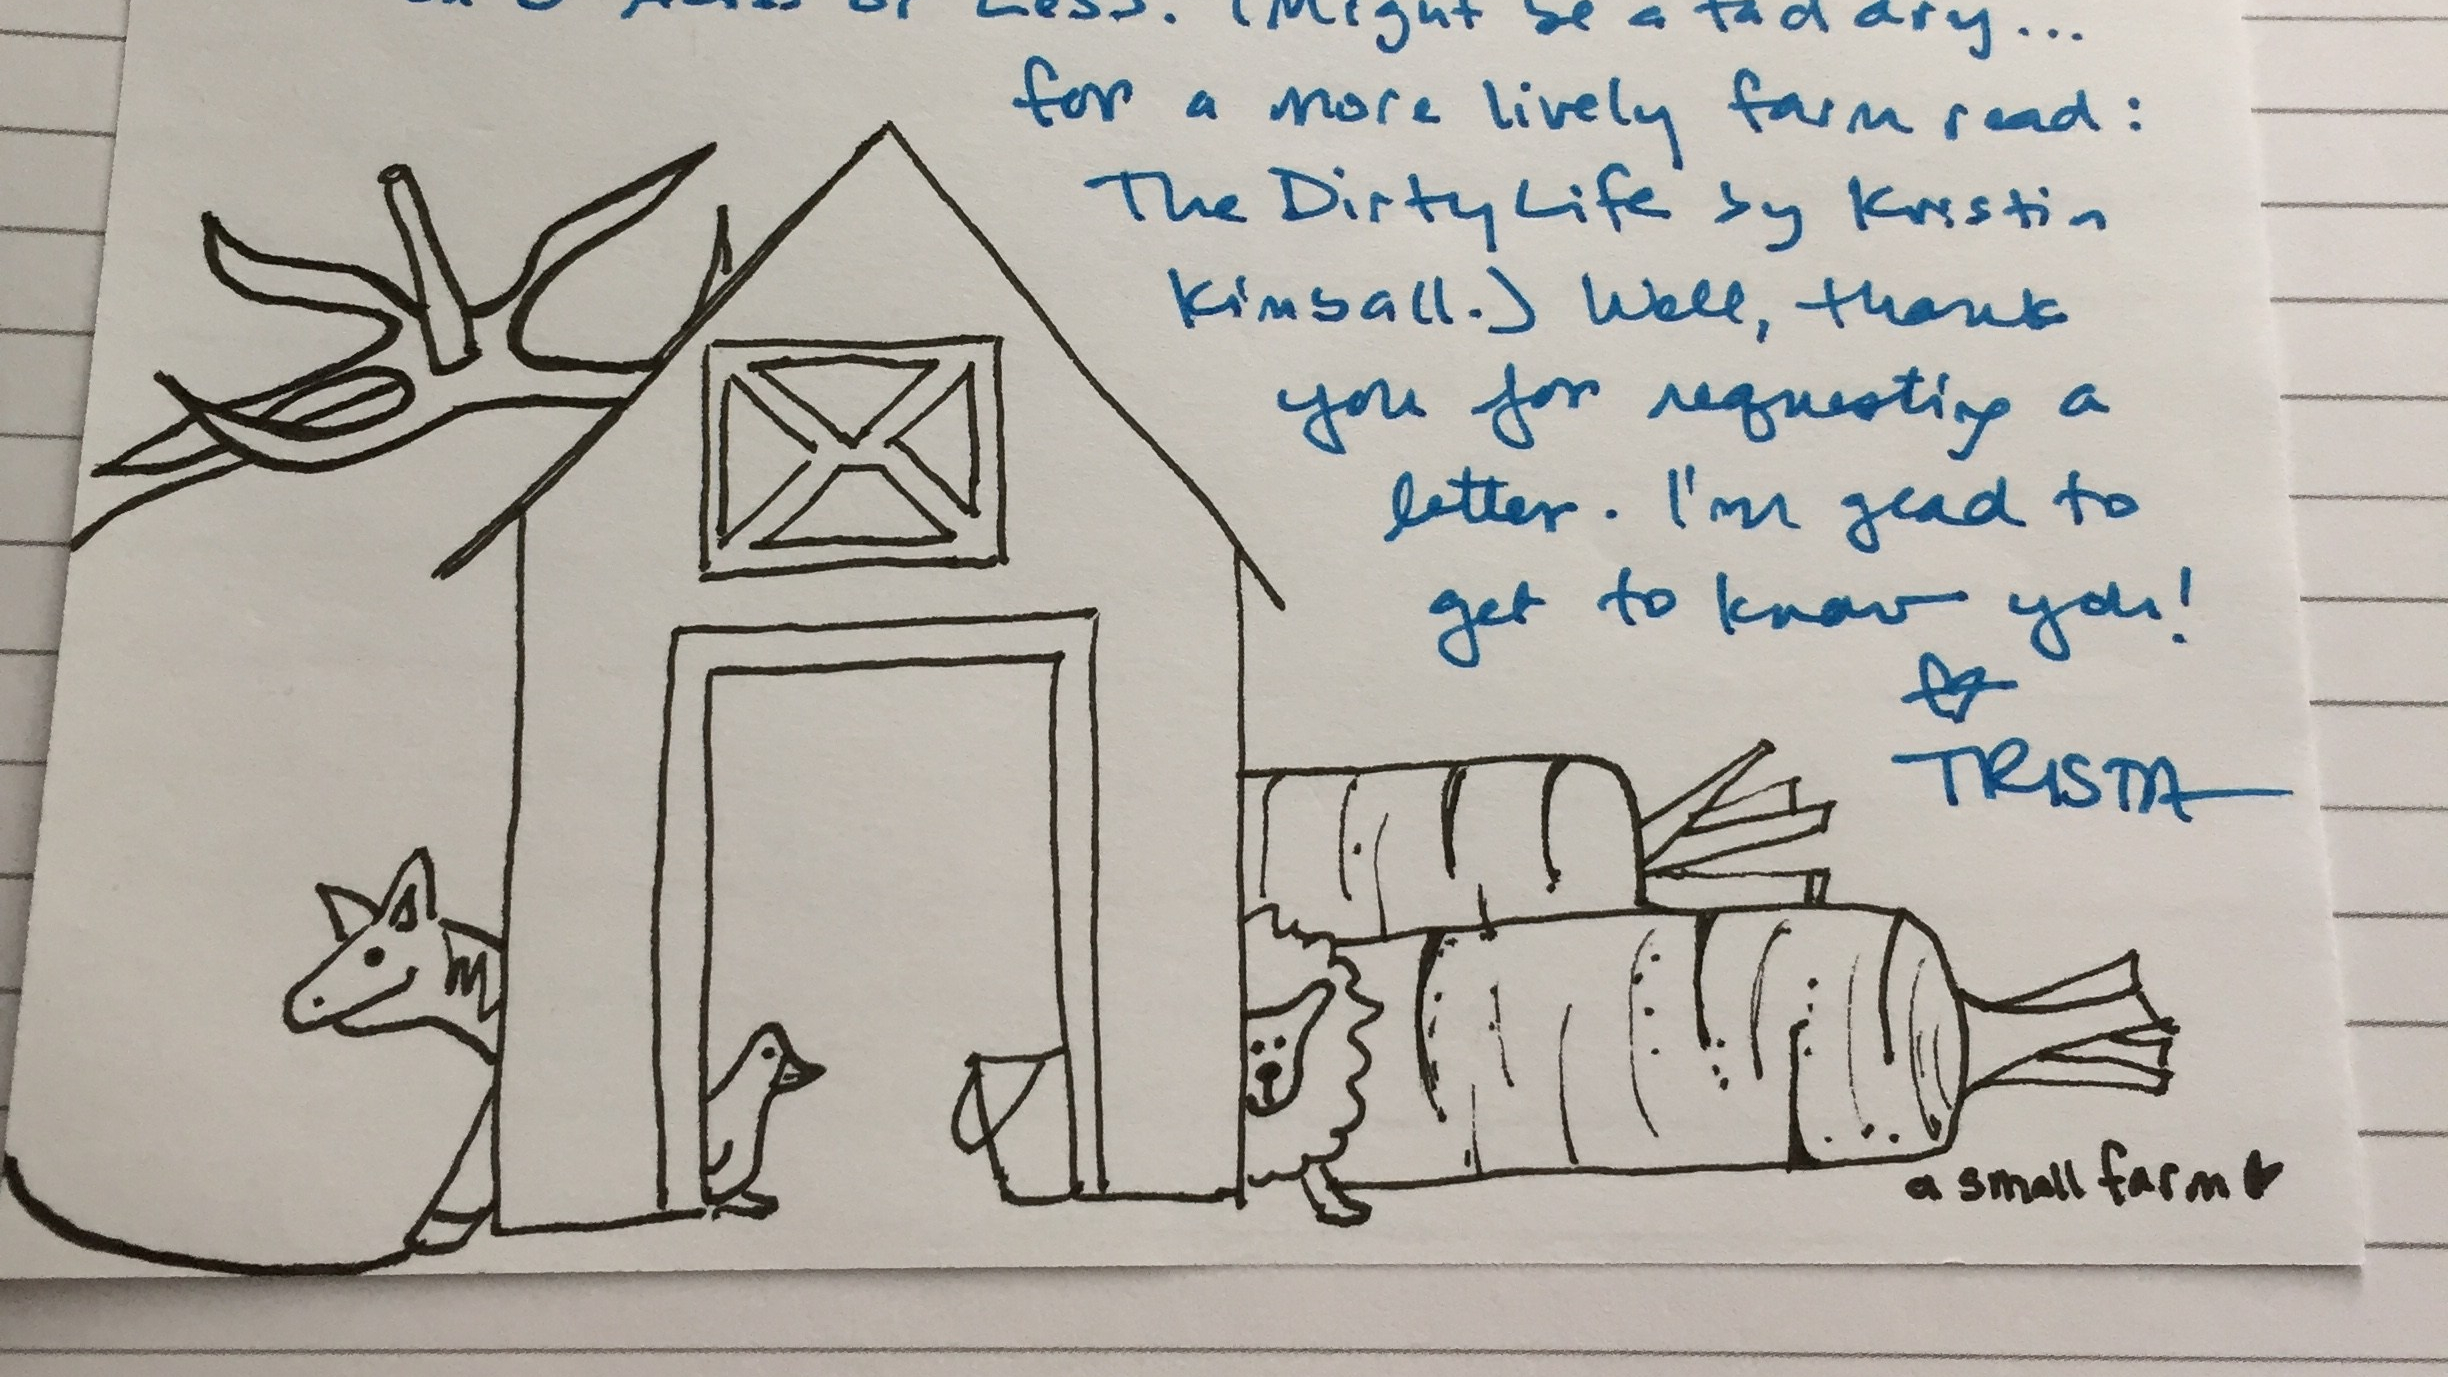 on 5 Acres or Less. (Might be a tad dry...
for a more lively farm read:
The Dirty Life by Kristin
Kimball.) Well, thank
you for requesting a
letter. I'm glad to
get to know you!
TRISTA
a small farm